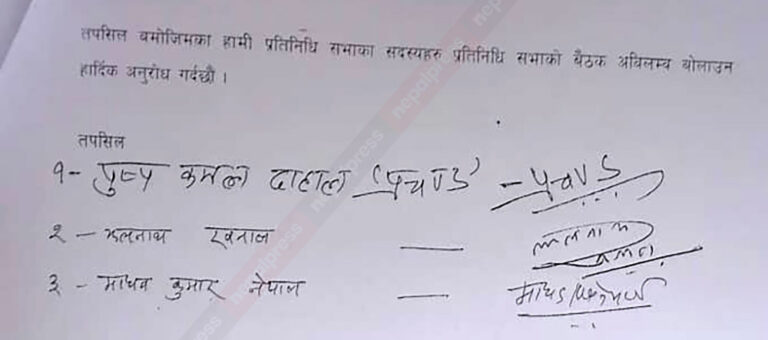 तपसिल बमोजिमका हामी प्रतिनिधि सभाका सदस्यहरु प्रतिनिधि सभाको बैठक अविलम्ब बोलाउन
हार्दिक अनुरोध गर्दछौ ।
तपसिल
१- पुष्प कमल दाहाल 'प्रचण्ड' - प्रचण्ड
२ - झलनाथ खनाल —
३ - माधव कुमार नेपाल —
nepalpress
nepalpress
nepalpress